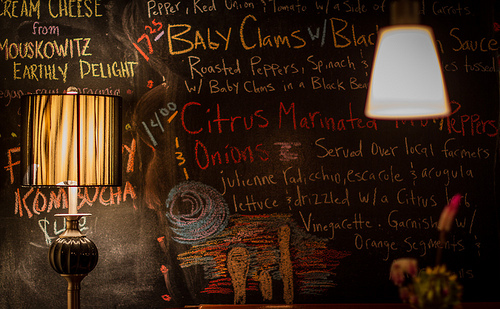 CREAM CHEESE
from
MOUSKOWITZ
EARTHLY DELIGHT
KOMBUCHA
Pepper, Red Onion, Tomato w/ a Side of Carrots
17.25 BABY CLAMS w/ Black Sauce
Roasted Peppers, Spinach, tossed
w/ Baby Clams in a Black Bea
14.00 Citrus Marinated Peppers
Onions Served Over local farmers
julienne radicchio, escarole & arugula
lettuce & drizzled w/ a Citrus
Vinegarette. Garnish w/
Orange Segments